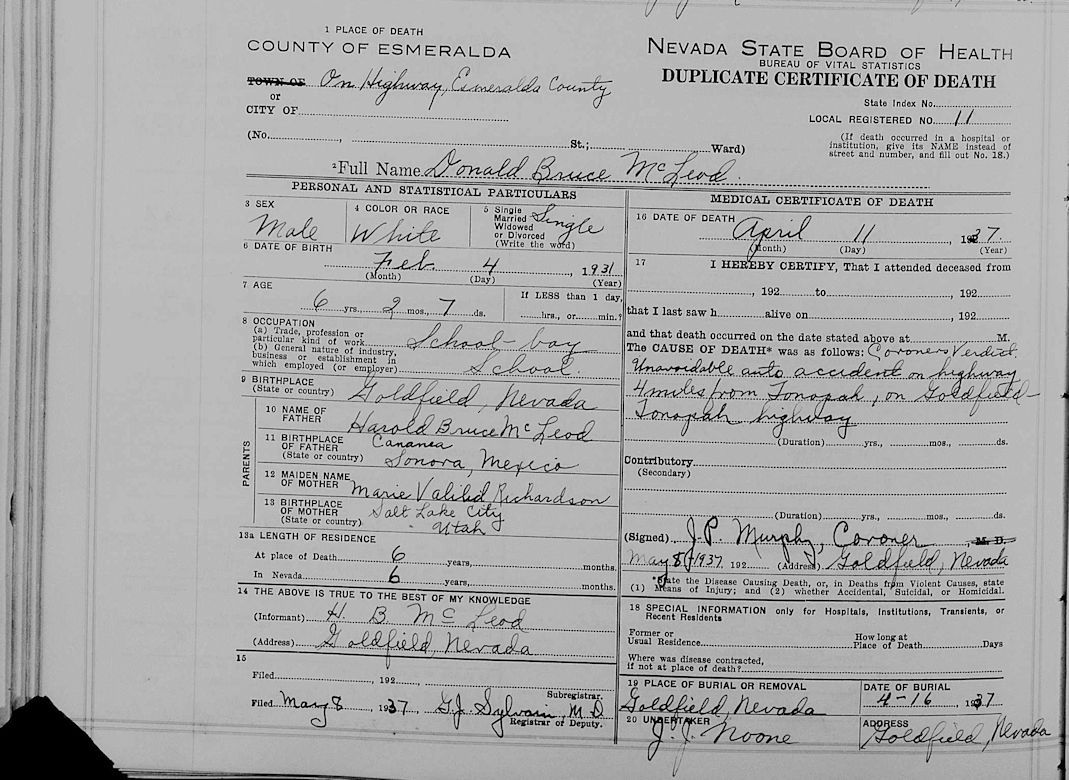 1 PLACE OF DEATH
COUNTY OF ESMERALDA
TOWN OF On Highway, Esmeralda County
or
CITY OF
(No. , St.; Ward)
NEVADA STATE BOARD OF HEALTH
BUREAU OF VITAL STATISTICS
DUPLICATE CERTIFICATE OF DEATH
State Index No.
LOCAL REGISTERED NO. 11
(If death occurred in a hospital or
institution, give its NAME instead of
street and number, and fill out No. 18.)
2 Full Name Donald Bruce McLeod.
PERSONAL AND STATISTICAL PARTICULARS
3 SEX
Male
4 COLOR OR RACE
White
5 Single
Married
Widowed
or Divorced
(Write the word)
Single
6 DATE OF BIRTH
Feb 4, 1931
(Month) (Day) (Year)
7 AGE
6 yrs. 2 mos. 7 ds.
If LESS than 1 day,
hrs., or min.?
8 OCCUPATION
(a) Trade, profession or
particular kind of work School-boy
(b) General nature of industry,
business or establishment in
which employed (or employer) School.
9 BIRTHPLACE
(State or country) Goldfield, Nevada
PARENTS
10 NAME OF
FATHER Harold Bruce McLeod
11 BIRTHPLACE
OF FATHER Cananea
(State or country) Sonora, Mexico
12 MAIDEN NAME
OF MOTHER Marie Richardson
13 BIRTHPLACE
OF MOTHER Salt Lake City
(State or country) Utah
13a LENGTH OF RESIDENCE
At place of Death 6 years, months.
In Nevada 6 years, months.
14 THE ABOVE IS TRUE TO THE BEST OF MY KNOWLEDGE
(Informant) H. B. McLeod
(Address) Goldfield, Nevada
15
Filed , 192 ,
Subregistrar.
Filed May 8, 1937, G.J. Sylvain, M D
Registrar or Deputy.
MEDICAL CERTIFICATE OF DEATH
16 DATE OF DEATH
April 11, 1937.
(Month) (Day) (Year)
17 I HEREBY CERTIFY, That I attended deceased from
, 192 to , 192
that I last saw h alive on , 192
and that death occurred on the date stated above at M.
The CAUSE OF DEATH* was as follows: Coroners Verdict.
Unavoidable auto accident on highway
4 miles from Tonopah, on Goldfield-
Tonopah highway
(Duration) yrs., mos., ds.
Contributory
(Secondary)
(Duration) yrs., mos., ds.
(Signed) J. P. Murphy, Coroner, M. D.
May 8, 1937, 192 (Address) Goldfield, Nevada
*State the Disease Causing Death, or, in Deaths from Violent Causes, state
(1) Means of Injury; and (2) whether Accidental, Suicidal, or Homicidal.
18 SPECIAL INFORMATION only for Hospitals, Institutions, Transients, or
Recent Residents
Former or
Usual Residence
How long at
Place of Death Days
Where was disease contracted,
if not at place of death?
19 PLACE OF BURIAL OR REMOVAL
Goldfield, Nevada
DATE OF BURIAL
4-16, 1937
20 UNDERTAKER
J. J. Noone
ADDRESS
Goldfield, Nevada